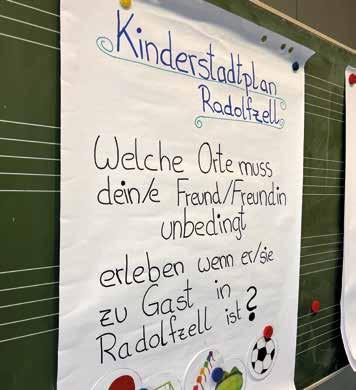 Kinderstadtplan
Radolfzell
Welche Orte muss
dein/e Freund/Freundin
unbedingt
erleben wenn er/sie
zu Gast in
Radolfzell ist?